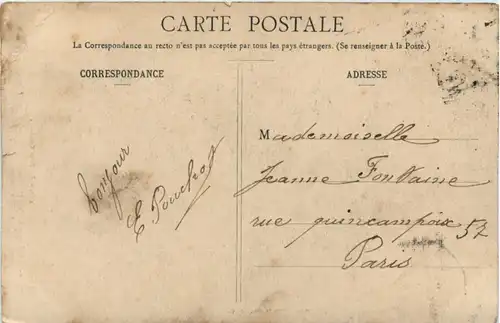 CARTE POSTALE
La Correspondance au recto n'est pas acceptée par tous les pays étrangers. (Se renseigner à la Poste.)
CORRESPONDANCE
bonjour
E
ADRESSE
Mademoiselle
Jeanne Fontaine
rue quincampoix 57
Paris